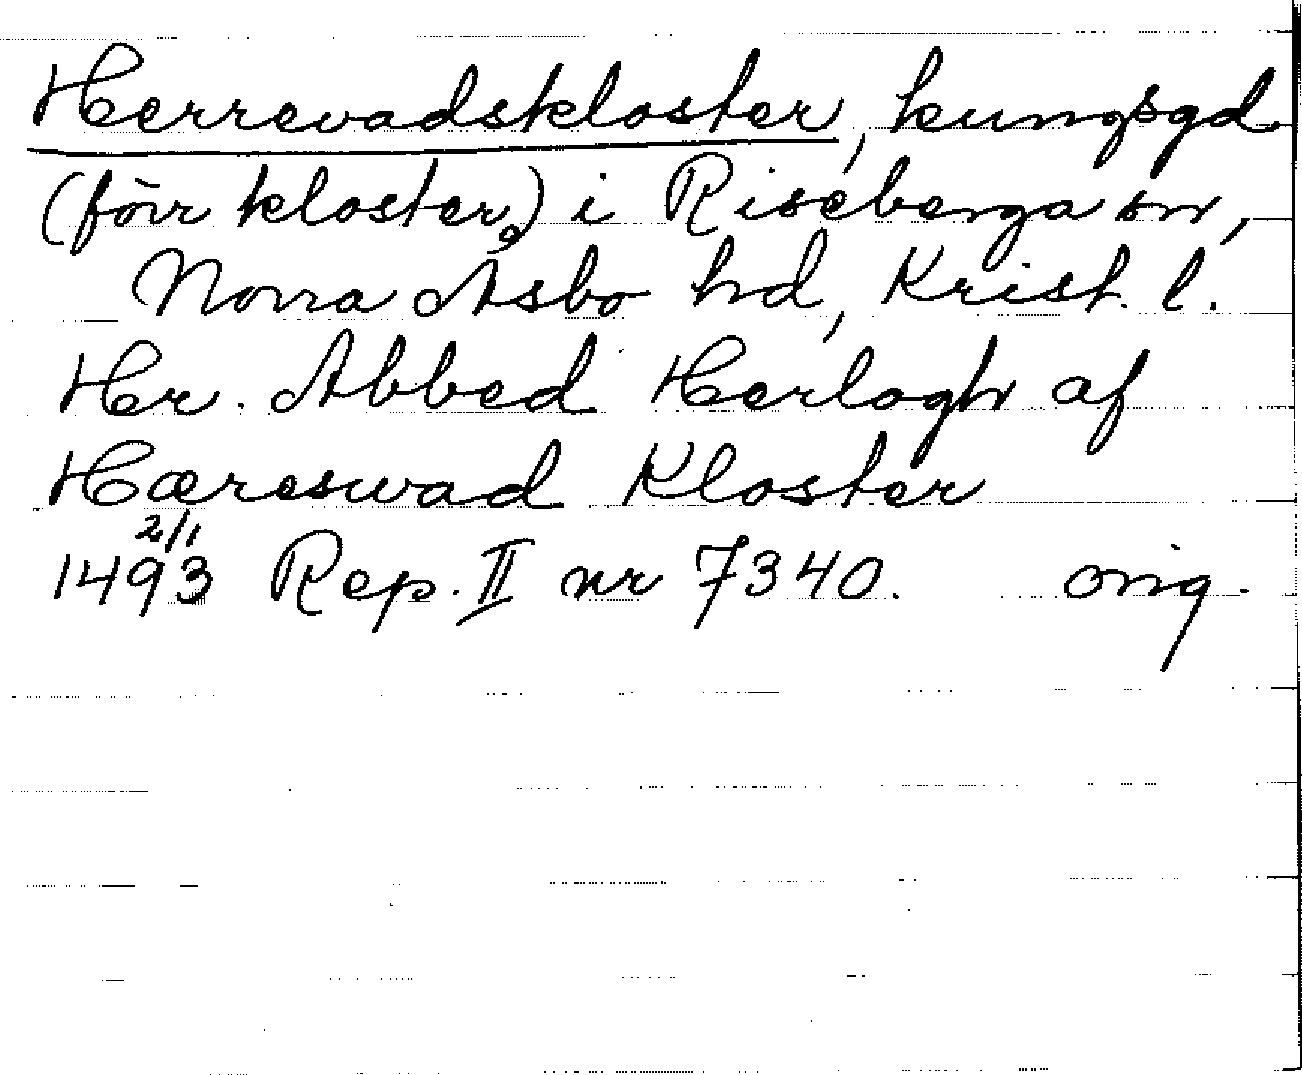 Herrevadskloster, kungsgd
(förr kloster) i Riseberga sn,
Norra Åsbo hd, Krist. l.
Her. Abbed Herlogh af
Hæreswad Kloster
2/1
1493 Rep. II nr 7340. orig.